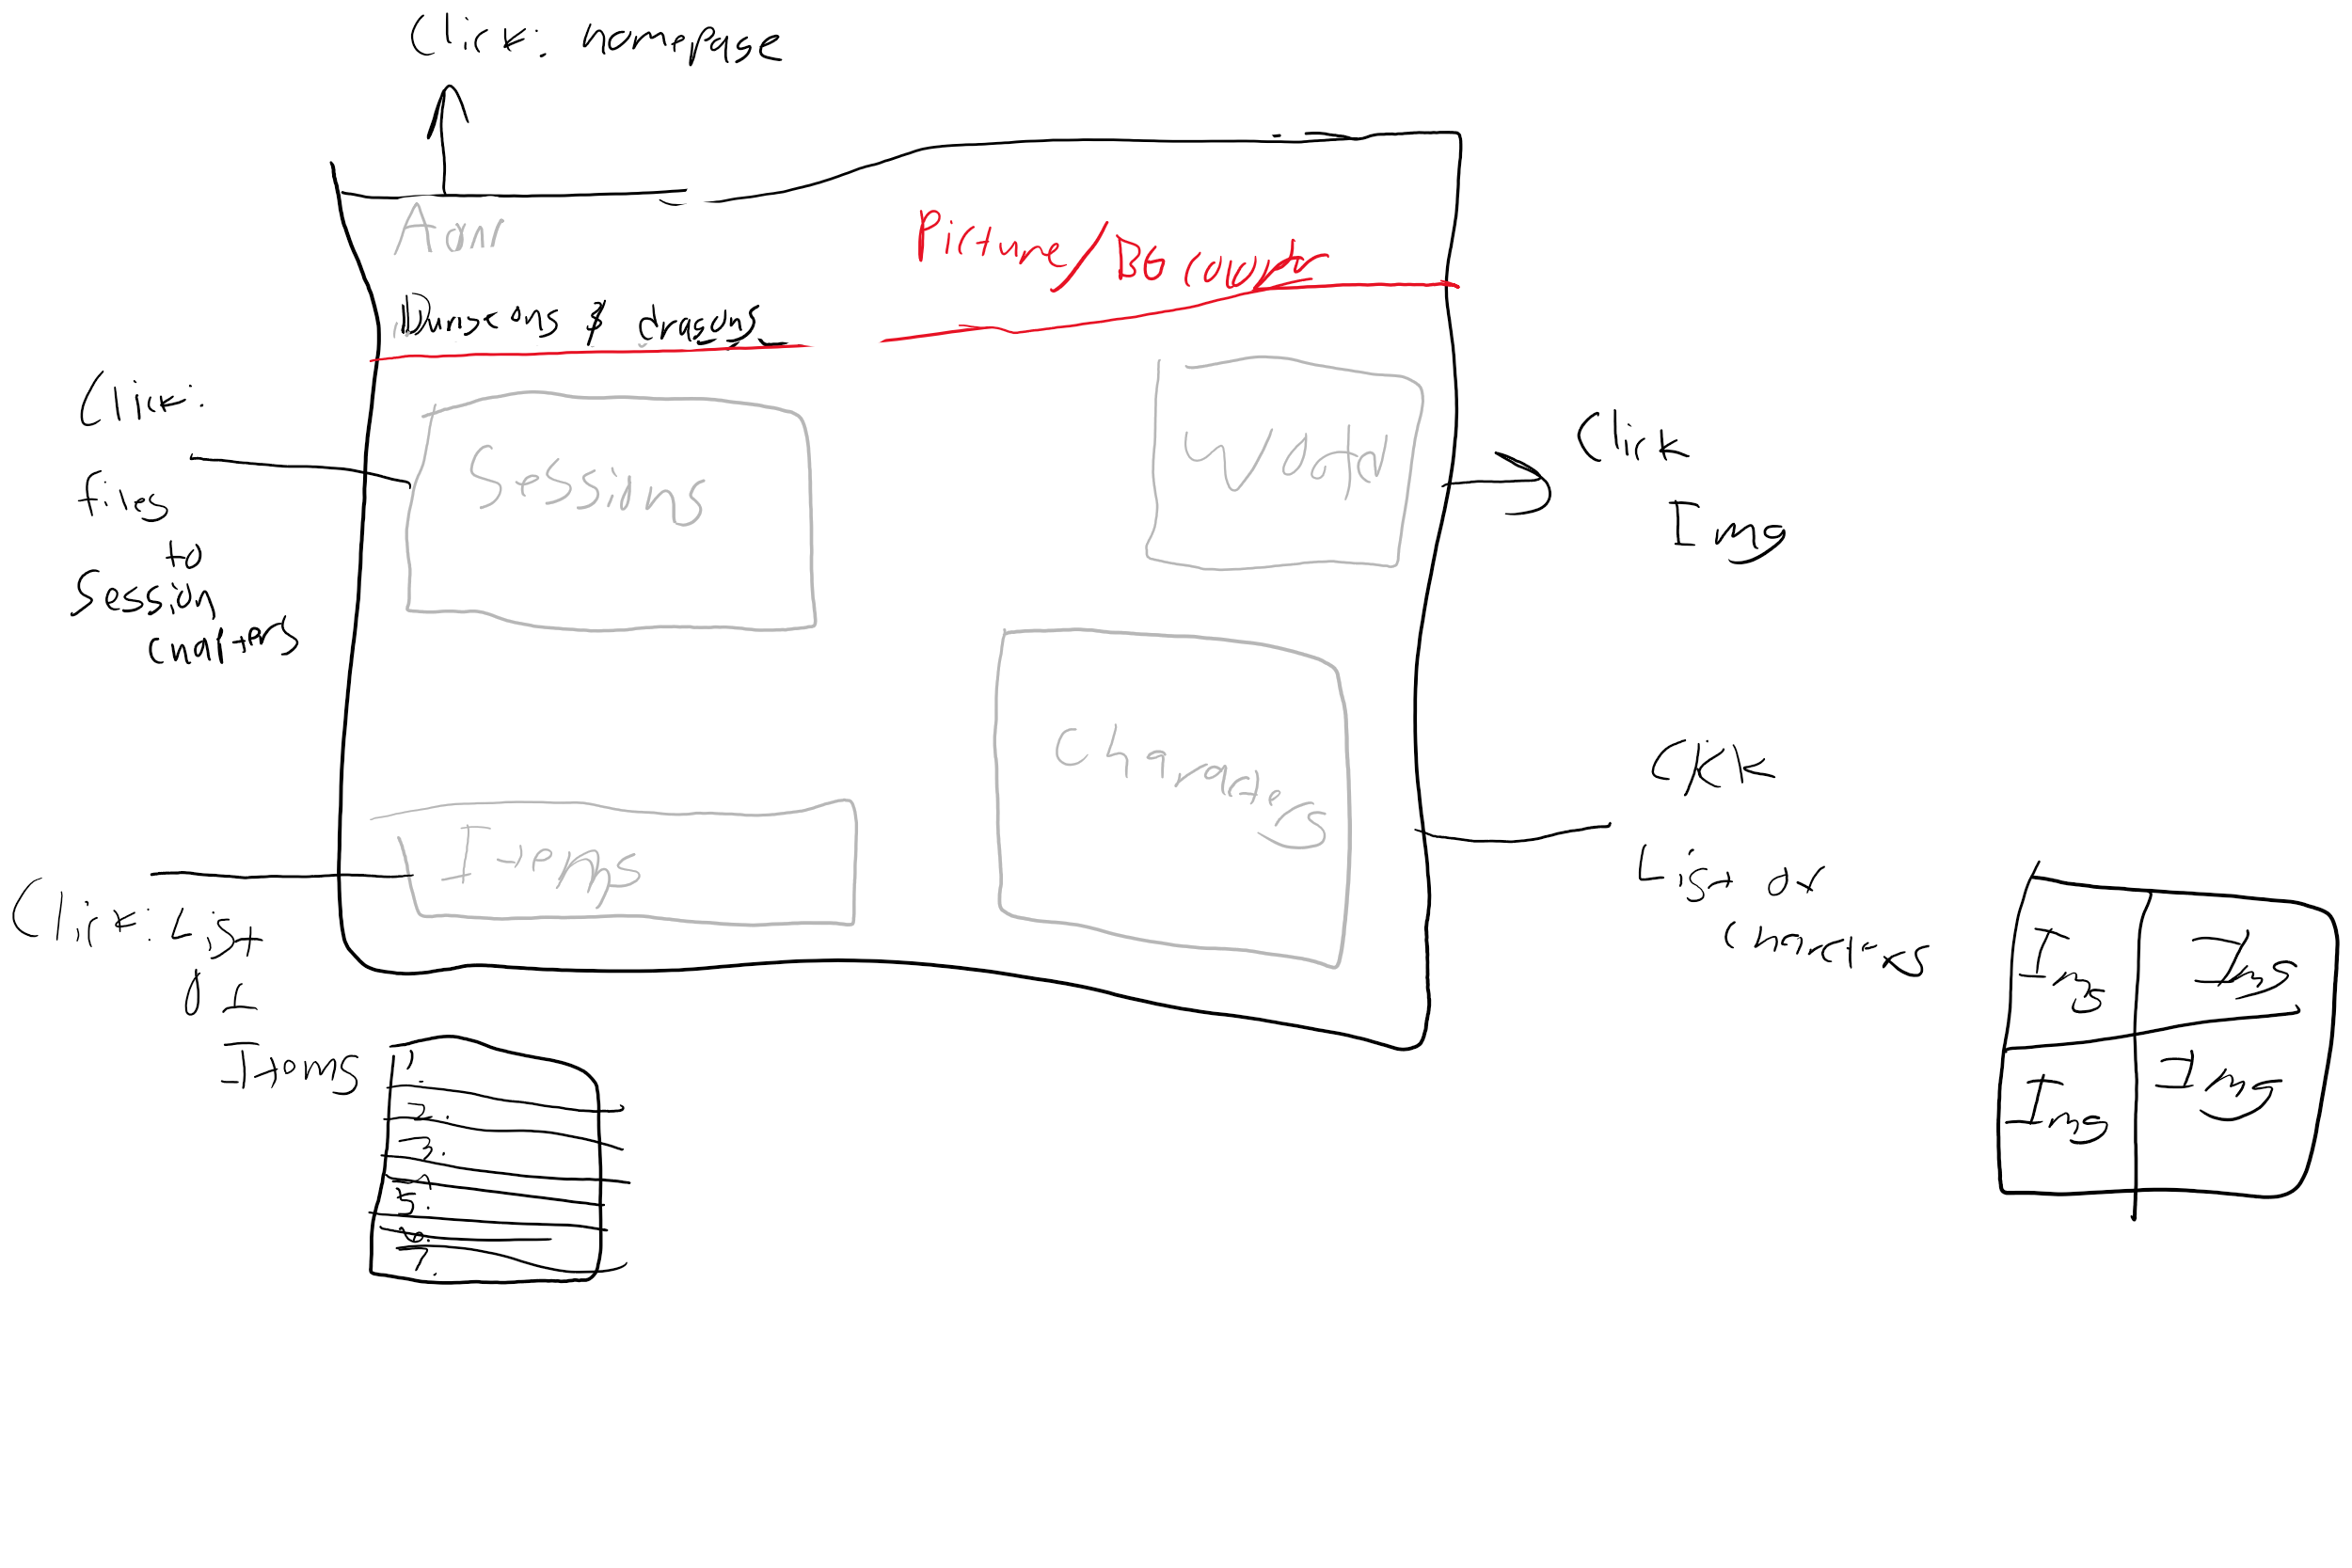 Click: homepage
Aonr
Picture/BG
Dungeons & dragons
Click:
files
to
Session
chapters
Sessions
World
Click
Img
Characters
Click
List of
Characters
Items
Click: List
of
Items
1.
2.
3.
5.
6.
7.
Img
Img
Img
Img